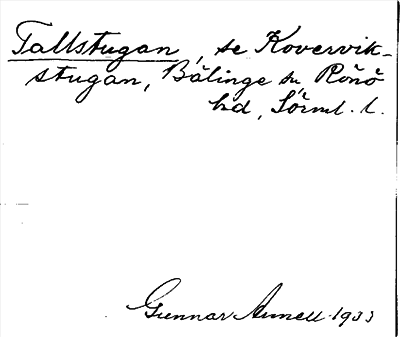 Tallstugan, se Kovervik-
stugan, Bälinge sn Rönö
hd, Sörml. l.
Gunnar Annell 1933